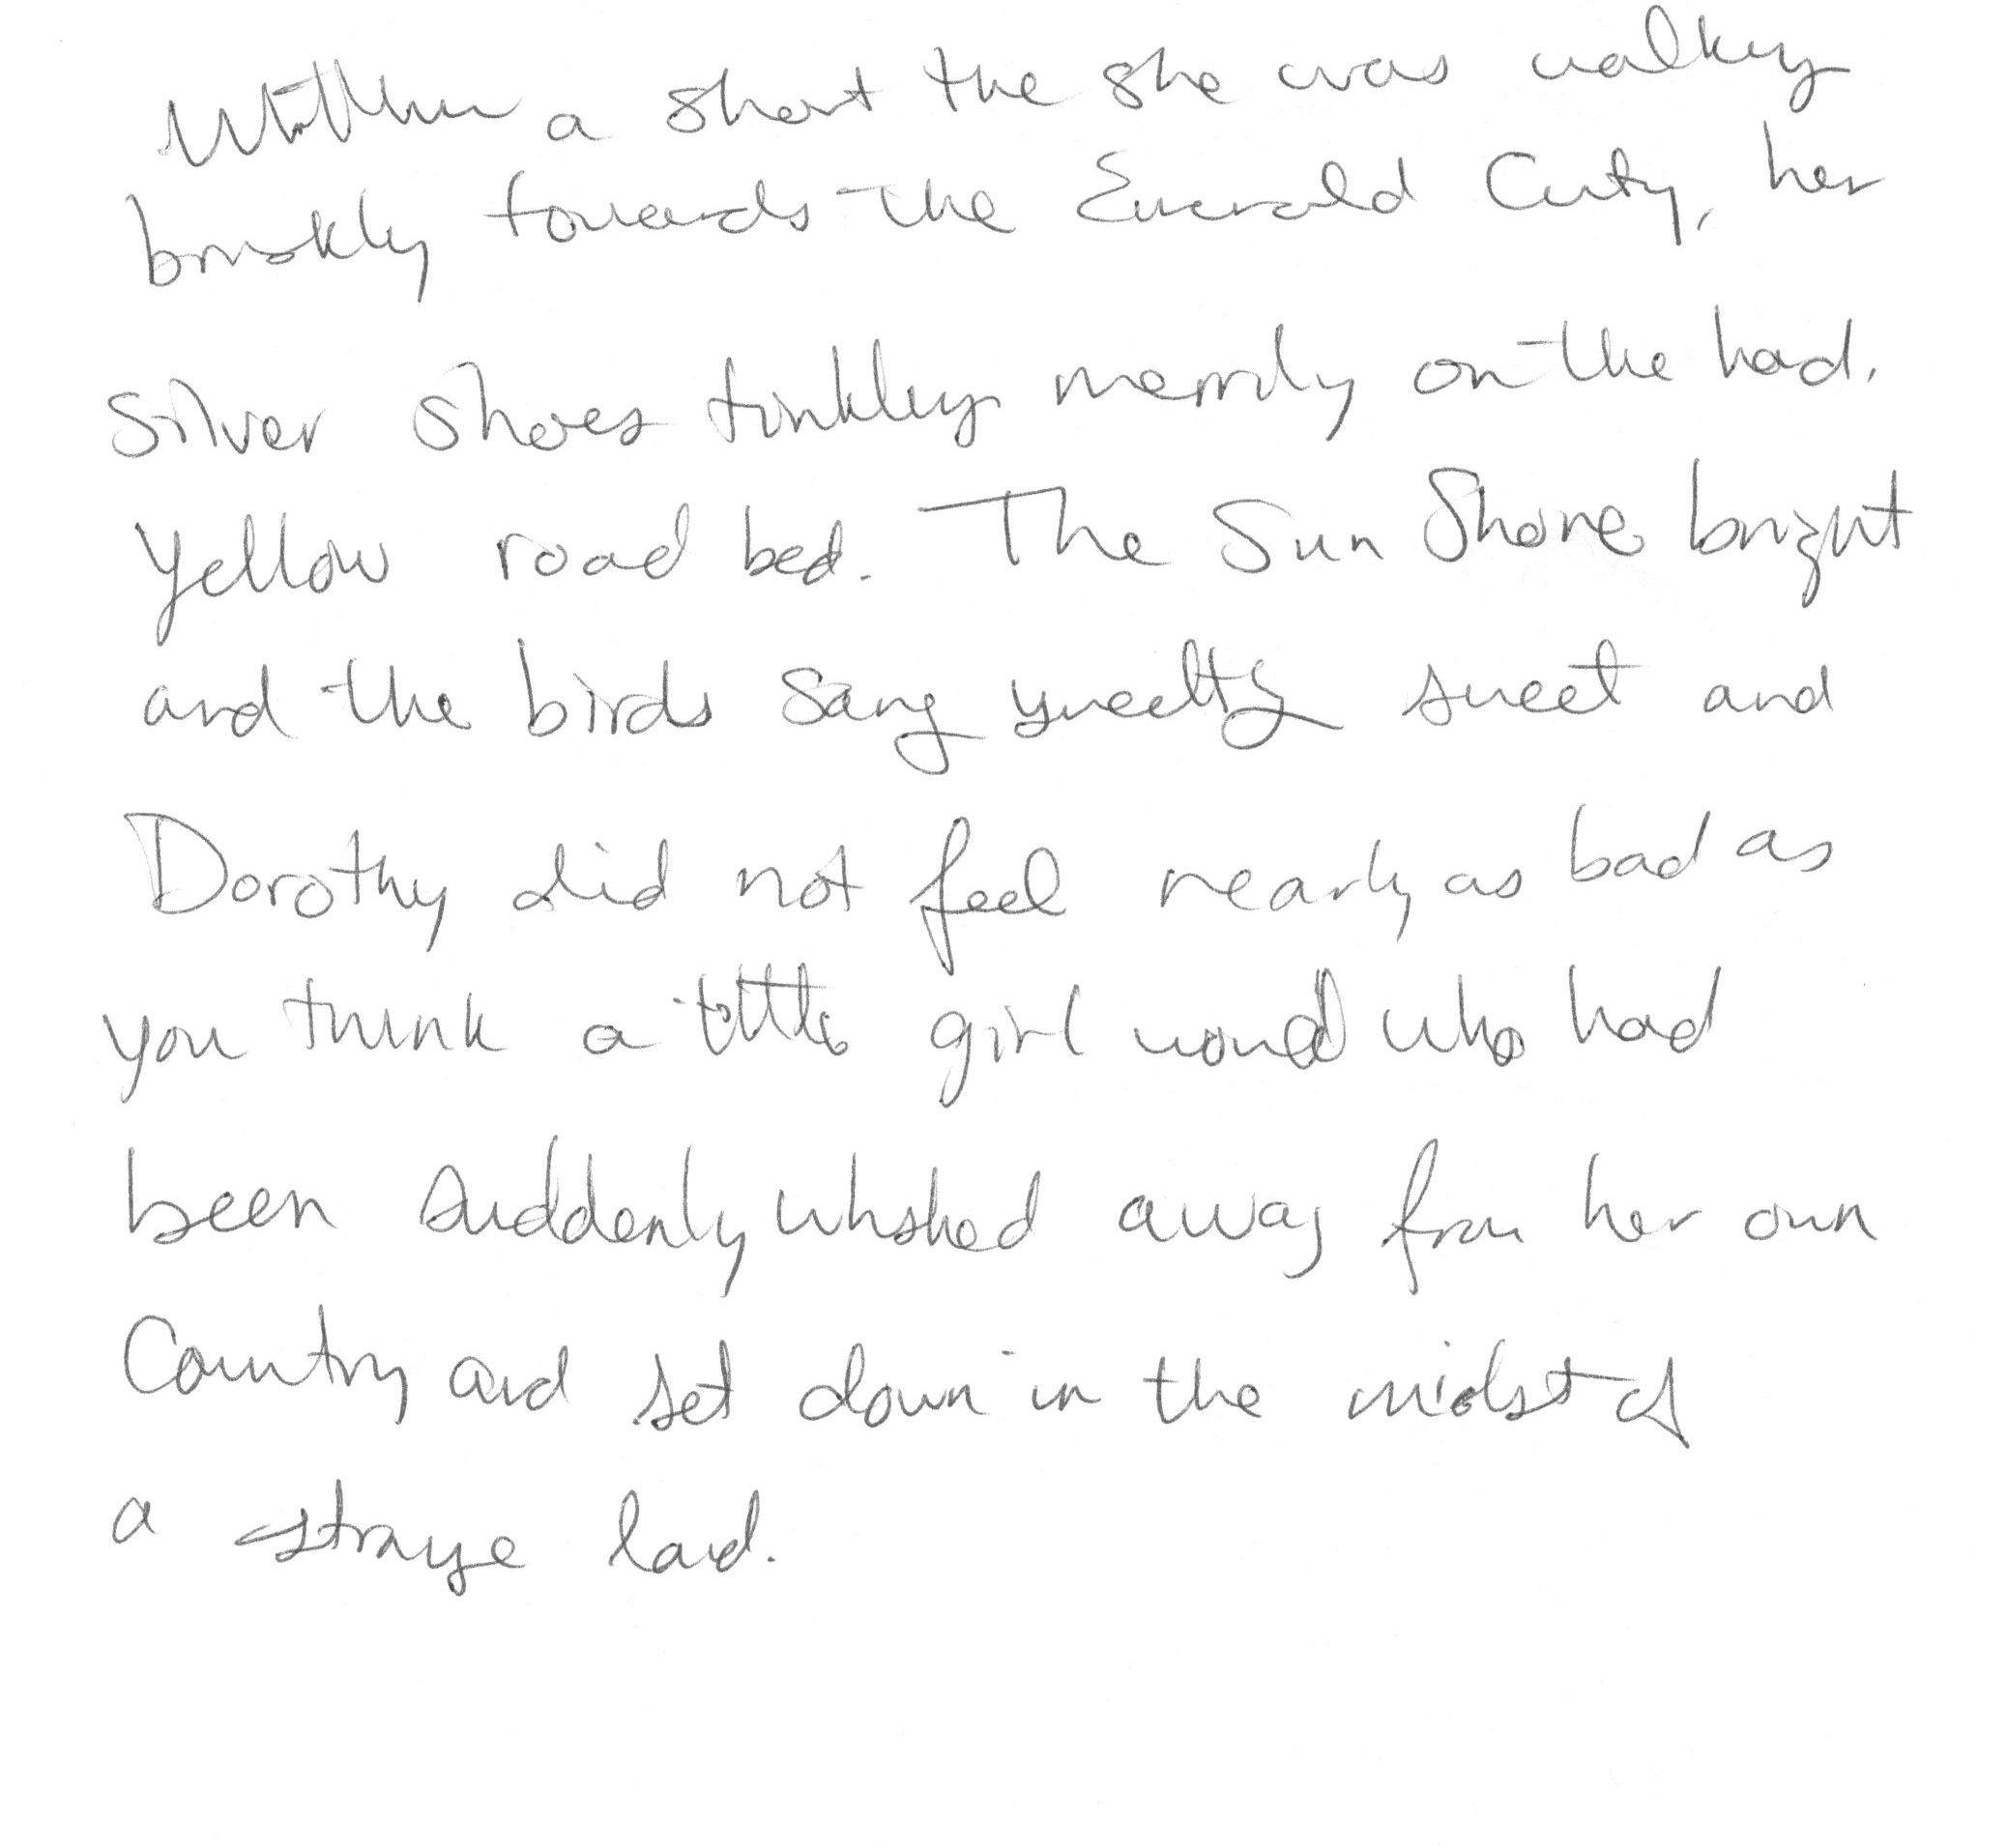 Within a short time she was walking
briskly towards the Emerald City, her
Silver Shoes tinkling merrily on the hard,
yellow road bed. The Sun Shone bright
and the birds sang sweetly sweet and
Dorothy did not feel nearly as bad as
you think a little girl would who had
been suddenly whished away from her own
Country and set down in the midst of
a strange land.